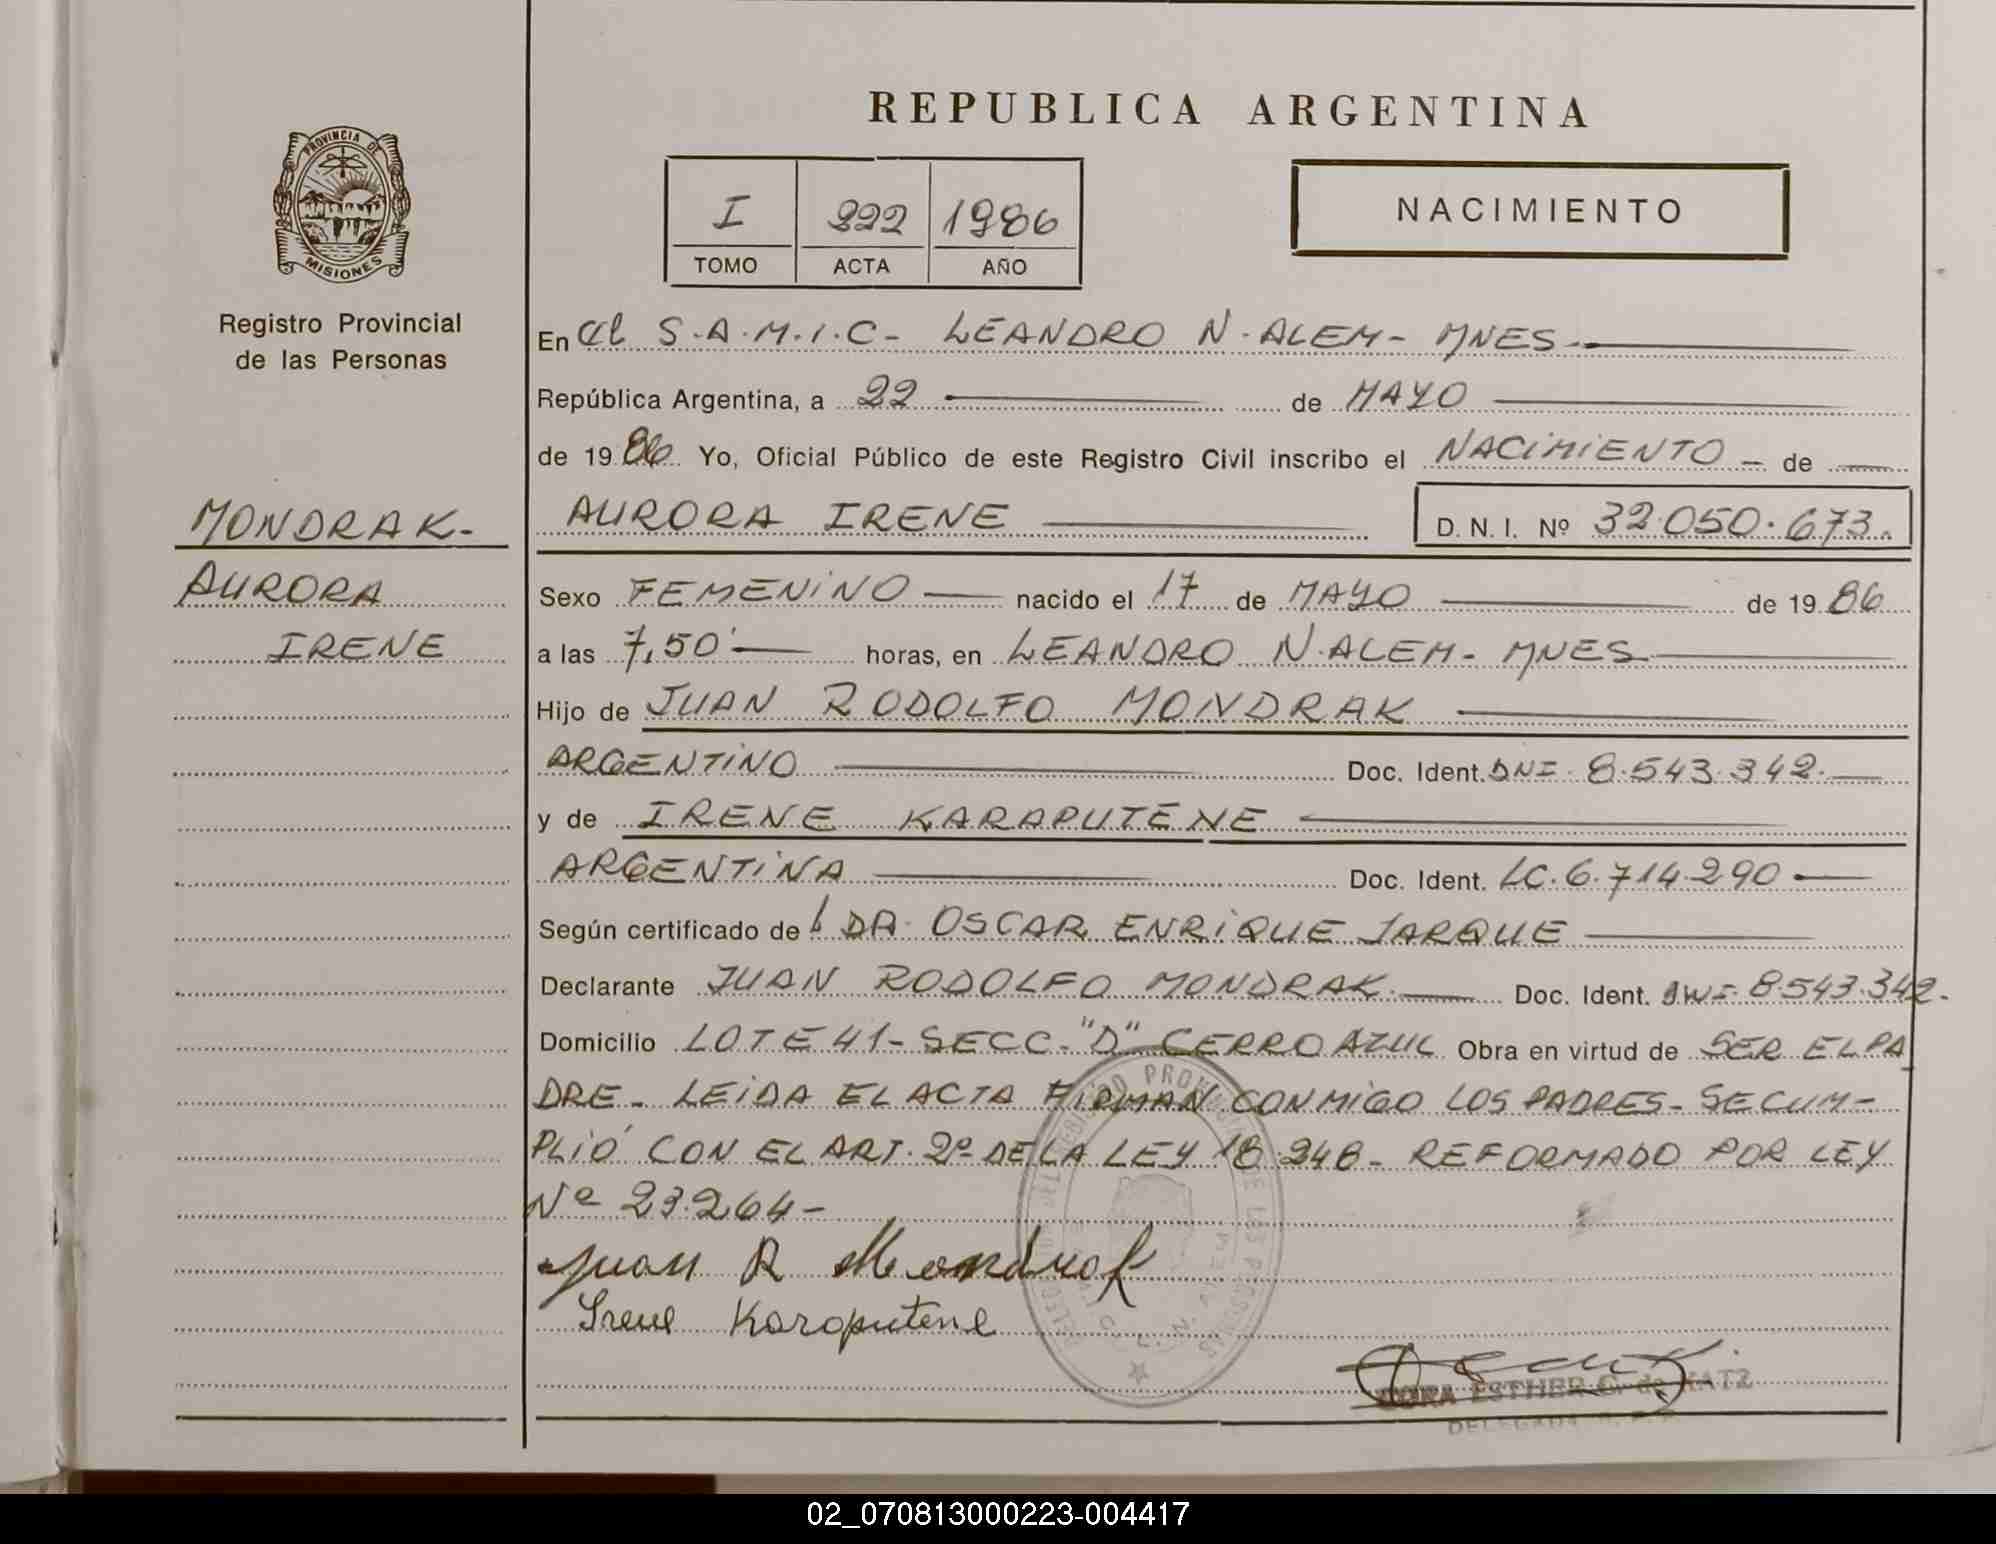 REPUBLICA ARGENTINA
PROVINCIA DE
MISIONES
Registro Provincial
de las Personas
I 222 1986
TOMO ACTA AÑO
NACIMIENTO
En el S.A.M.I.C- LEANDRO N. ALEM- MNES-
República Argentina, a 22 de MAYO
de 1986 Yo, Oficial Público de este Registro Civil inscribo el NACIMIENTO - de
MONDRAK-
AURORA IRENE D. N. I. Nº 32.050.673.
AURORA
Sexo FEMENINO nacido el 17 de MAYO de 1986
IRENE
a las 7,50' horas, en LEANDRO N. ALEM- MNES
Hijo de JUAN RODOLFO MONDRAK
ARGENTINO Doc. Ident. DNI. 8.543.342.
y de IRENE KARAPUTENE
ARGENTINA Doc. Ident. LC. 6.714.290
Según certificado del DR. OSCAR ENRIQUE JARQUE
Declarante JUAN RODOLFO MONDRAK. Doc. Ident. DNI- 8.543.342.
Domicilio LOTE 41- SECC- "D" CERRO AZUL Obra en virtud de SER EL PA
DRE- LEIDA EL ACTA FIRMAN CONMIGO LOS PADRES- SE CUM-
PLIÓ CON EL ART. 2º DE LA LEY 18.248- REFORMADO POR LEY
Nº 23.264-
Juan R Mondrak
Irene Karaputene
DORA ESTHER de KATZ
DELEGADA
02_070813000223-004417